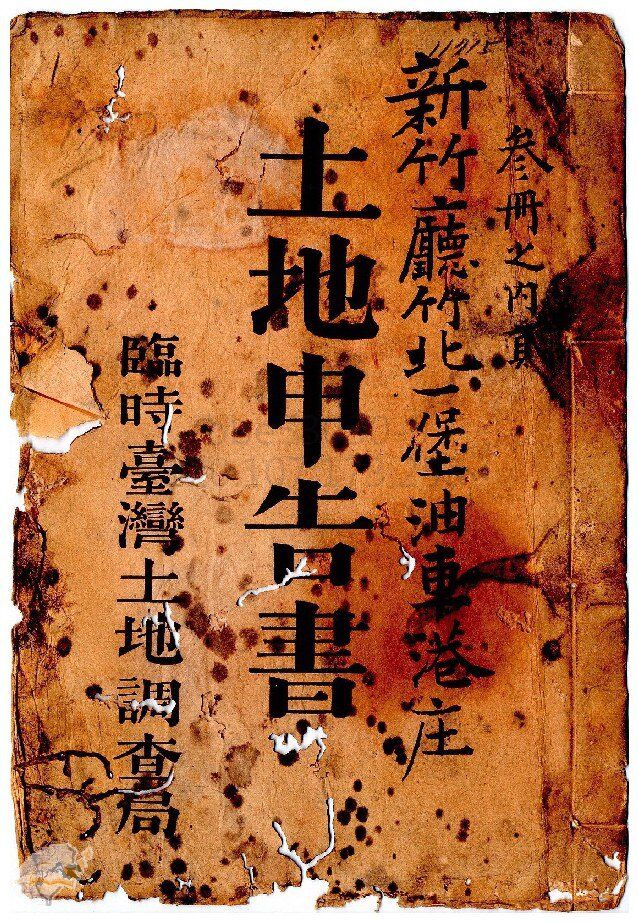 叁冊之內貳
新竹廳竹北一堡油車港庄
土地申告書
臨時臺灣土地調查局